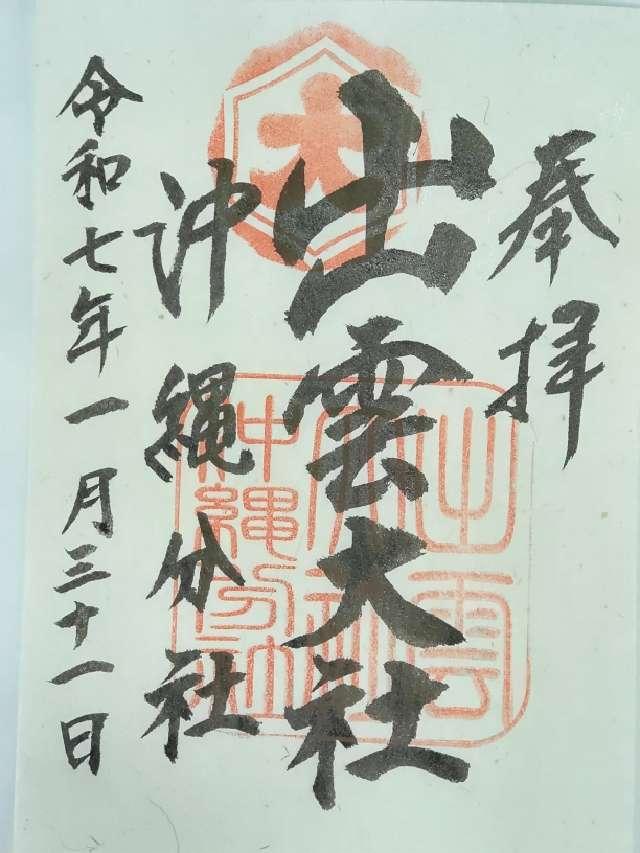 奉拝
出雲大社
沖縄分社
令和七年一月三十一日
大
出雲
大社
沖縄分社